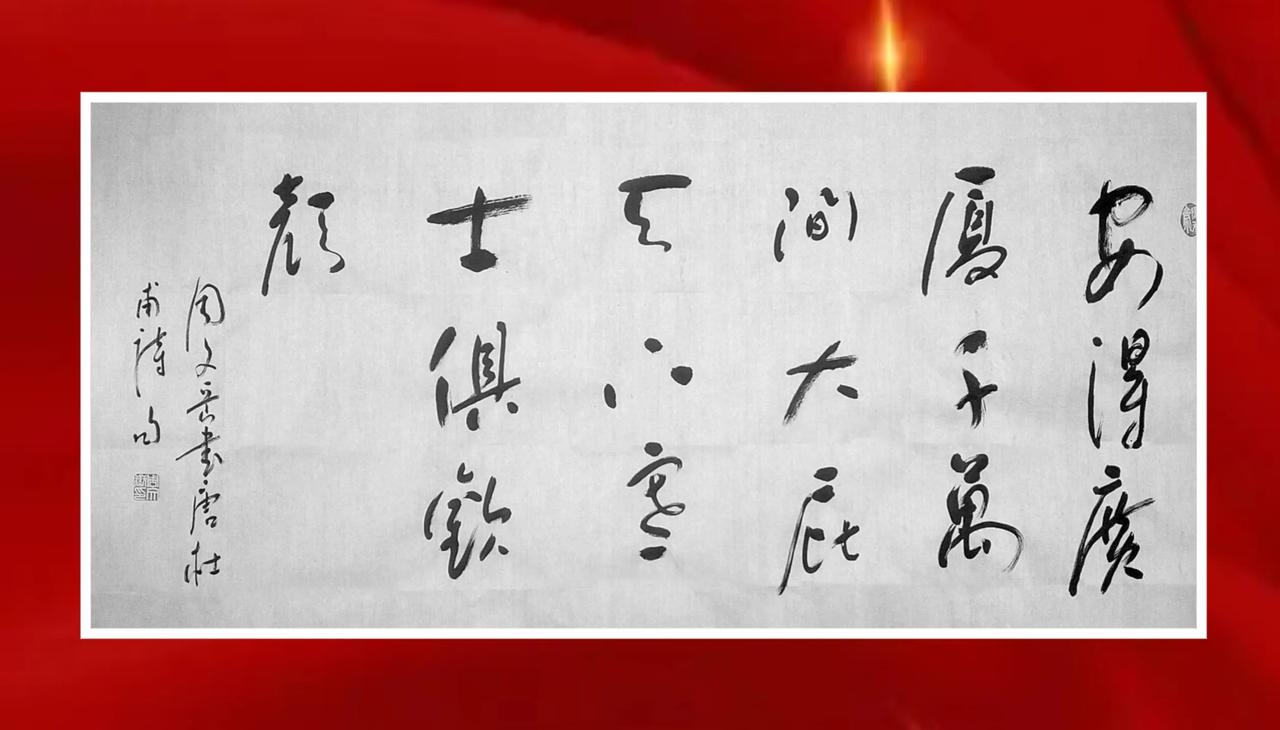 安得廣
厦千萬
間大庇
天下寒
士俱歡
顏
周文書唐杜
甫詩句